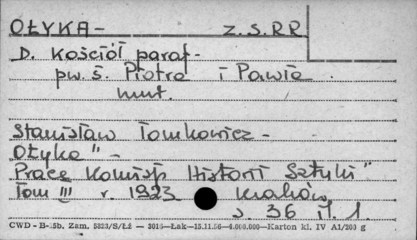 OŁYKA - Z.S.RR
D. Kościół paraf-
pw. ś. Piotra i Pawła
mnt.
Stanisław Tomkowicz -
Ołyka" -
Prace Komisji Historii Sztuki"
Tom III r. 1923 Kraków
s. 36 il. 1.
CWD - B-35b. Zam. 5823/S/Łd — 3016—Łak—15.11.56—4.000.000—Karton kl. IV A1/200 g